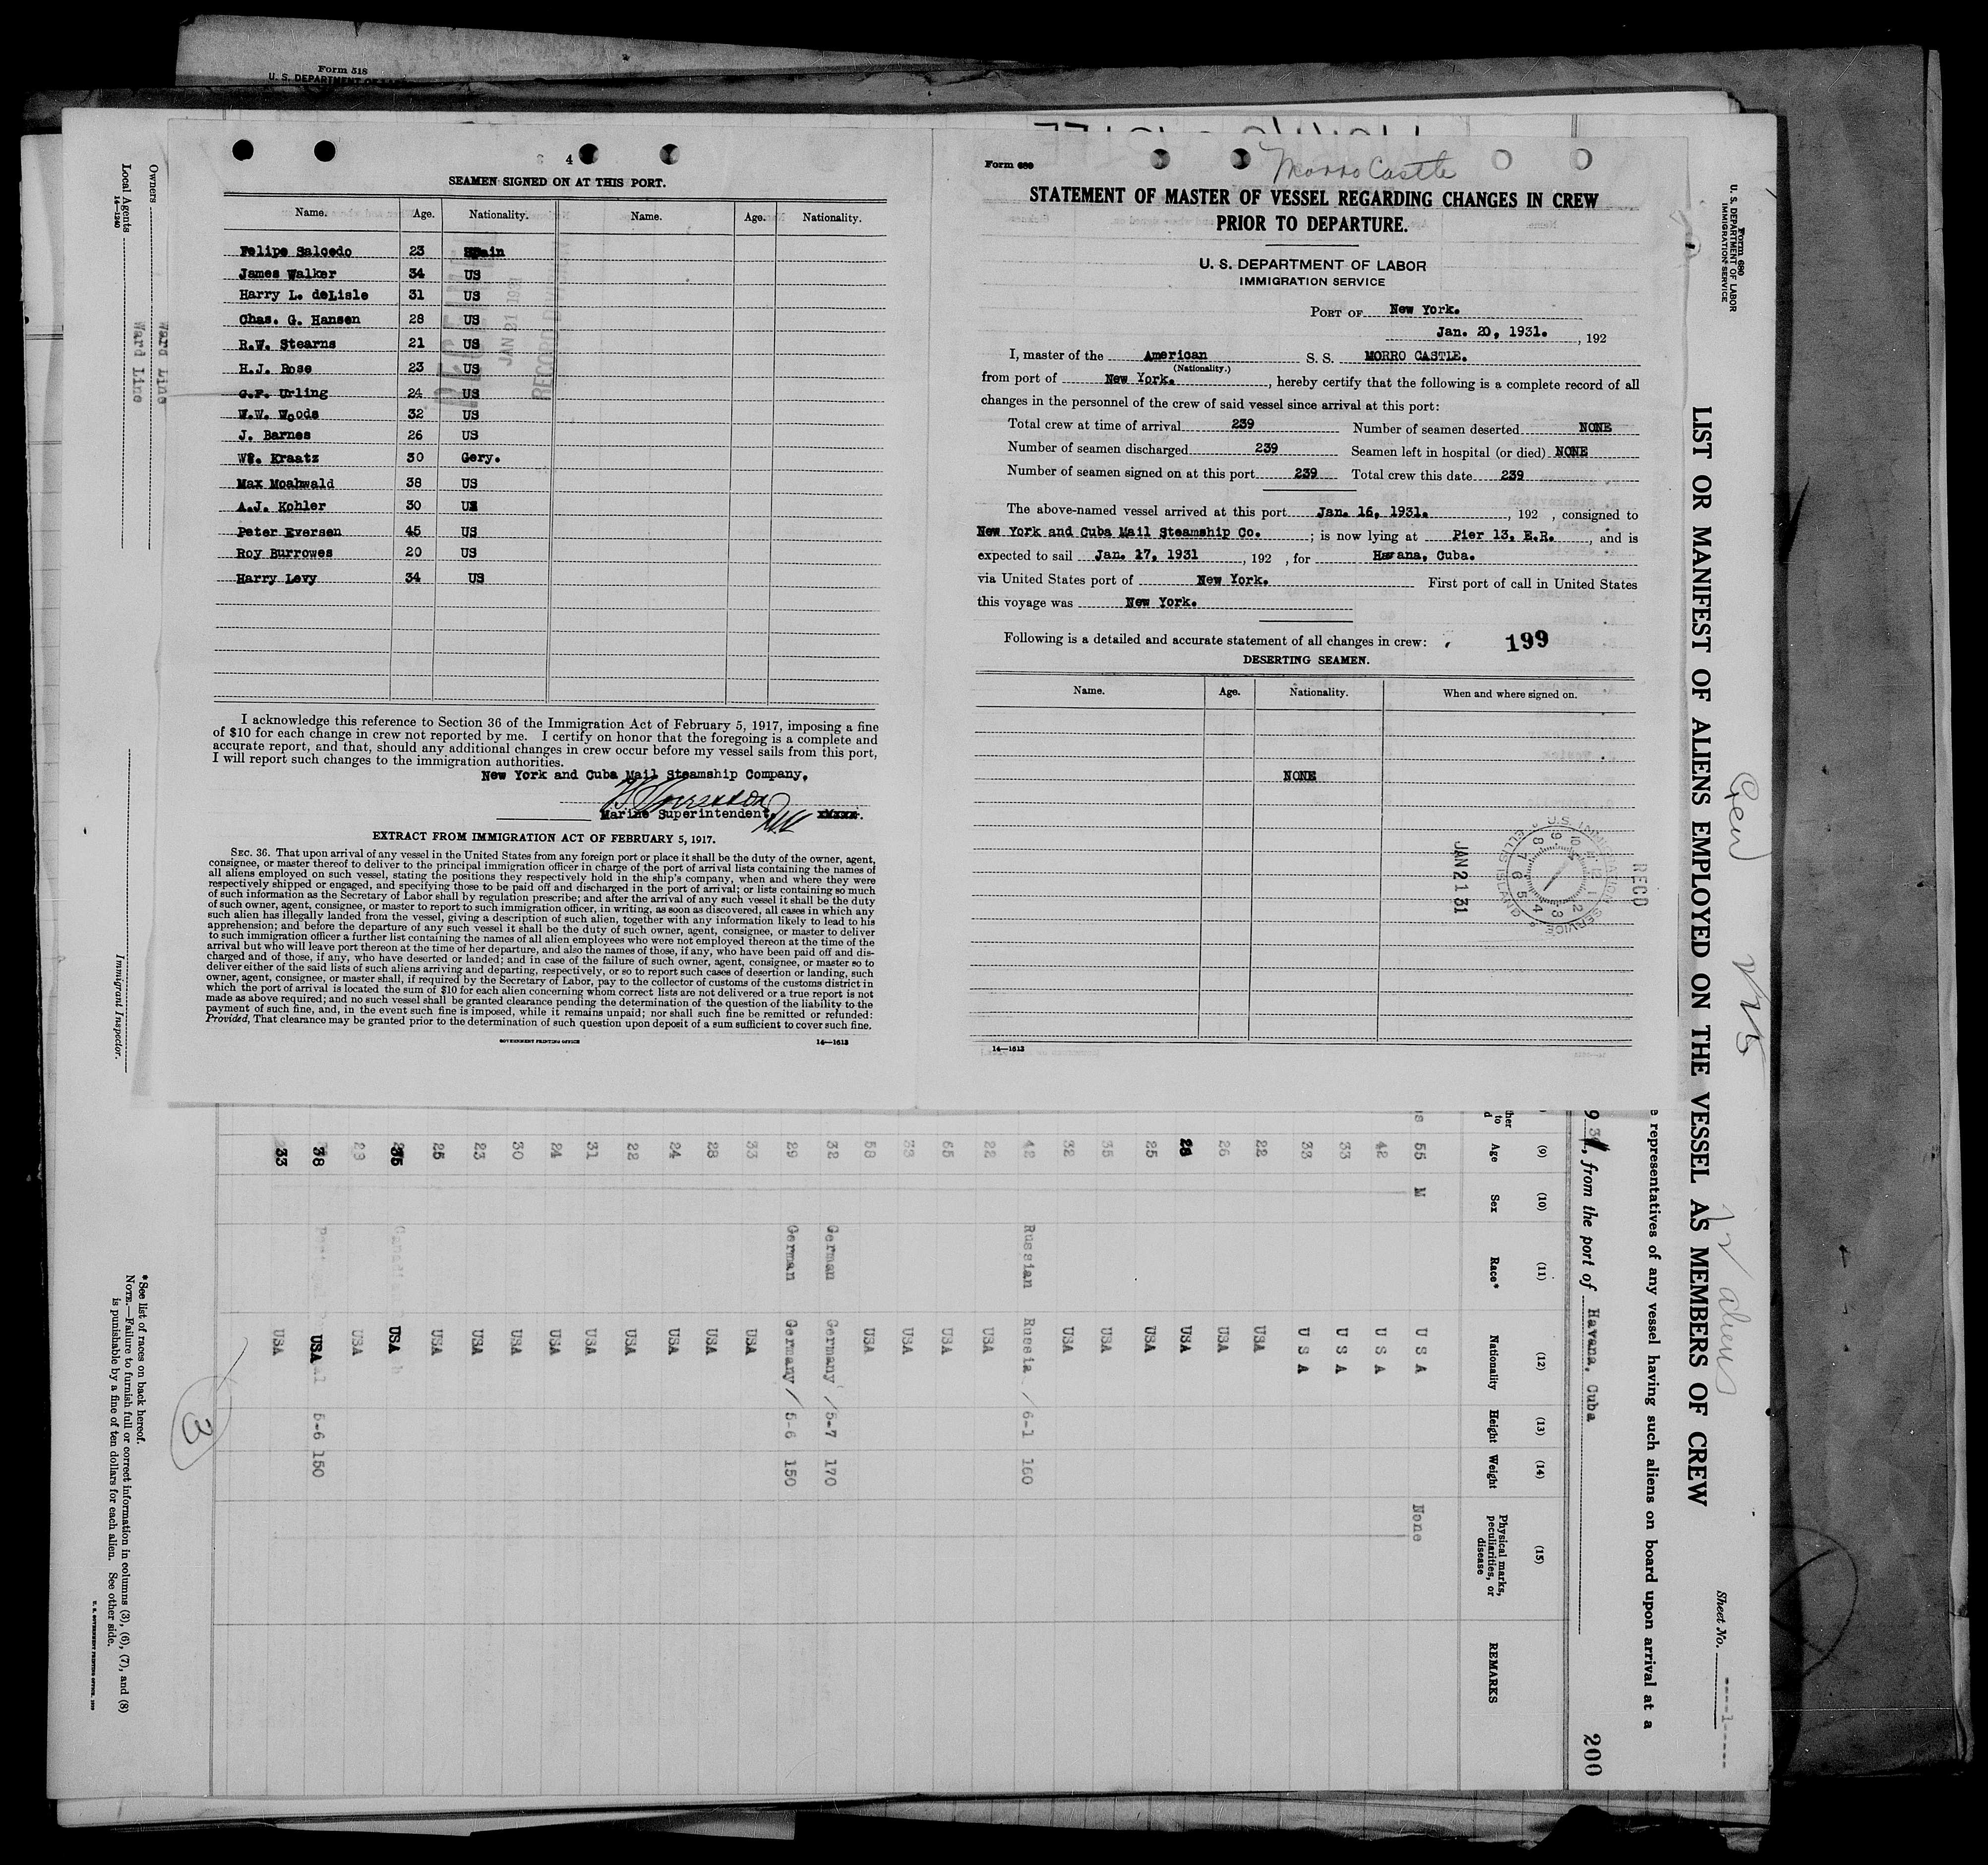 Form 318
U. S. DEPARTMENT OF
4
SEAMEN SIGNED ON AT THIS PORT.
Name. Age. Nationality. Name. Age. Nationality.
Felipe Salcedo 23 Spain
James Walker 34 US
Harry L. deLisle 31 US
Chas. G. Hansen 28 US
R.W. Stearns 21 US
H.J. Rose 23 US
G.F. Urling 24 US
W.W. Woods 32 US
J. Barnes 26 US
Wm. Kraatz 30 Gery.
Max Moahwald 38 US
A.J. Kohler 30 US
Peter Eversen 45 US
Roy Burrowes 20 US
Harry Levy 34 US
JAN 21 1931
I acknowledge this reference to Section 36 of the Immigration Act of February 5, 1917, imposing a fine
of $10 for each change in crew not reported by me. I certify on honor that the foregoing is a complete and
accurate report, and that, should any additional changes in crew occur before my vessel sails from this port,
I will report such changes to the immigration authorities.
New York and Cuba Mail Steamship Company,
Marine Superintendent,
EXTRACT FROM IMMIGRATION ACT OF FEBRUARY 5, 1917.
SEC. 36. That upon arrival of any vessel in the United States from any foreign port or place it shall be the duty of the owner, agent,
consignee, or master thereof to deliver to the principal immigration officer in charge of the port of arrival lists containing the names of
all aliens employed on such vessel, stating the positions they respectively hold in the ship's company, when and where they were
respectively shipped or engaged, and specifying those to be paid off and discharged in the port of arrival; or lists containing so much
of such information as the Secretary of Labor shall by regulation prescribe; and after the arrival of any such vessel it shall be the duty
of such owner, agent, consignee, or master to report to such immigration officer, in writing, as soon as discovered, all cases in which any
such alien has illegally landed from the vessel, giving a description of such alien, together with any information likely to lead to his
apprehension; and before the departure of any such vessel it shall be the duty of such owner, agent, consignee, or master to deliver
to such immigration officer a further list containing the names of all alien employees who were not employed thereon at the time of the
arrival but who will leave port thereon at the time of her departure, and also the names of those, if any, who have been paid off and dis-
charged and of those, if any, who have deserted or landed; and in case of the failure of such owner, agent, consignee, or master so to
deliver either of the said lists of such aliens arriving and departing, respectively, or so to report such cases of desertion or landing, such
owner, agent, consignee, or master shall, if required by the Secretary of Labor, pay to the collector of customs of the customs district in
which the port of arrival is located the sum of $10 for each alien concerning whom correct lists are not delivered or a true report is not
made as above required; and no such vessel shall be granted clearance pending the determination of the question of the liability to the
payment of such fine, and, in the event such fine is imposed, while it remains unpaid; nor shall such fine be remitted or refunded:
Provided, That clearance may be granted prior to the determination of such question upon deposit of a sum sufficient to cover such fine.
GOVERNMENT PRINTING OFFICE 14—1613
Form 680
Morro Castle
STATEMENT OF MASTER OF VESSEL REGARDING CHANGES IN CREW
PRIOR TO DEPARTURE.
U. S. DEPARTMENT OF LABOR
IMMIGRATION SERVICE
PORT OF New York.
Jan. 20, 1931. , 192
I, master of the American S. S. MORRO CASTLE.
(Nationality.)
from port of New York. , hereby certify that the following is a complete record of all
changes in the personnel of the crew of said vessel since arrival at this port:
Total crew at time of arrival 239 Number of seamen deserted NONE
Number of seamen discharged 239 Seamen left in hospital (or died) NONE
Number of seamen signed on at this port 239 Total crew this date 239
The above-named vessel arrived at this port Jan. 16, 1931. , 192 , consigned to
New York and Cuba Mail Steamship Co. ; is now lying at Pier 13, E.R. , and is
expected to sail Jan. 17, 1931 , 192 , for Havana, Cuba.
via United States port of New York. First port of call in United States
this voyage was New York.
Following is a detailed and accurate statement of all changes in crew: 199
DESERTING SEAMEN.
Name. Age. Nationality. When and where signed on.
NONE
RECD
U.S. IMMIGRATION SERVICE ELLIS ISLAND
JAN 21 31
14—1613
Form 680
U. S. DEPARTMENT OF LABOR
IMMIGRATION SERVICE
LIST OR MANIFEST OF ALIENS EMPLOYED ON THE VESSEL AS MEMBERS OF CREW
12 aliens
Sheet No. 1
e representatives of any vessel having such aliens on board upon arrival at a
, from the port of Havana, Cuba
200
(9) (10) (11) (12) (13) (14) (15)
Age Sex Race* Nationality Height Weight Physical marks, peculiarities, or disease REMARKS
55 M U S A None
42 U S A
33 U S A
33 U S A
22 USA
26 USA
28 USA
25 USA
35 USA
32 USA
42 Russian Russia 6-1 160
22 USA
65 USA
33 USA
58 USA
32 German Germany 5-7 170
29 German Germany 5-6 150
33 USA
28 USA
24 USA
22 USA
31 USA
24 USA
30 USA
23 USA
25 USA
35 USA
29 USA
38 USA 5-6 150
33 USA
3
Owners Ward Line
Local Agents Ward Line
14—1240
Immigrant Inspector.
*See list of races on back hereof.
NOTE.—Failure to furnish full or correct information in columns (3), (6), (7), and (8)
is punishable by a fine of ten dollars for each alien. See other side.